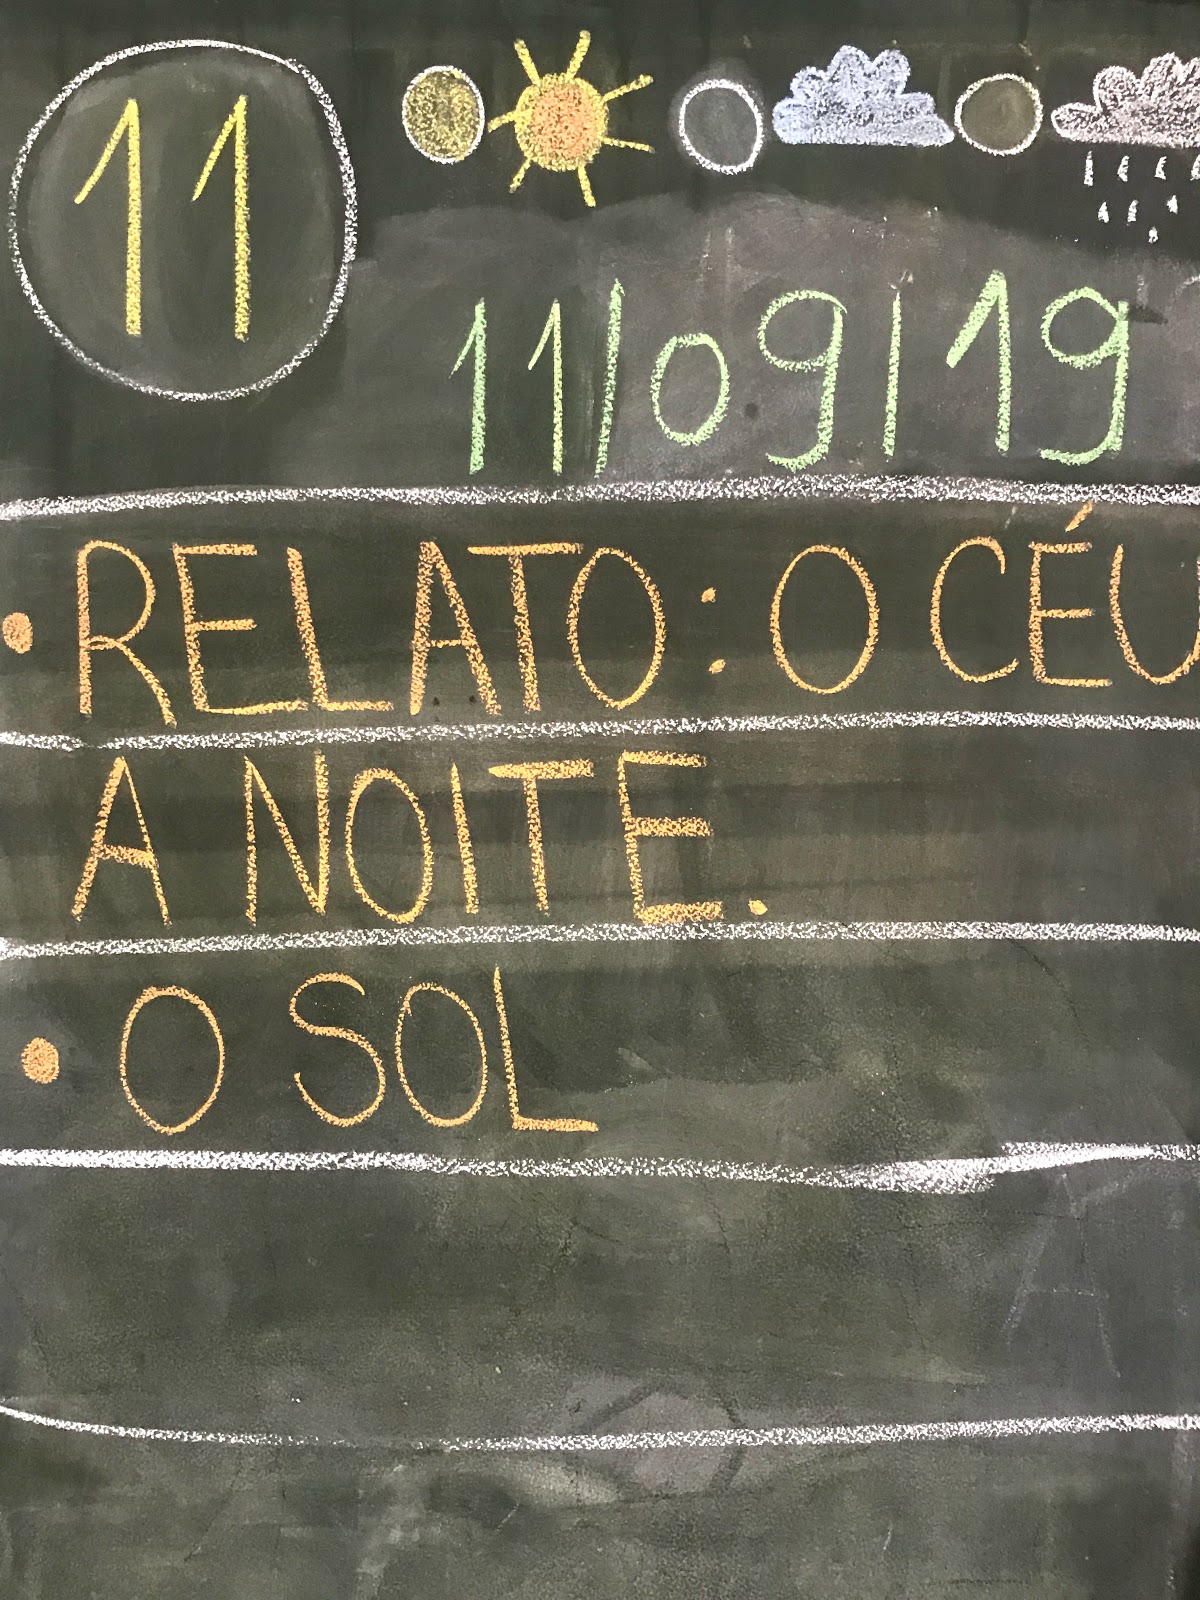 11
11/09/19
• RELATO: O CÉU
A NOITE.
• O SOL